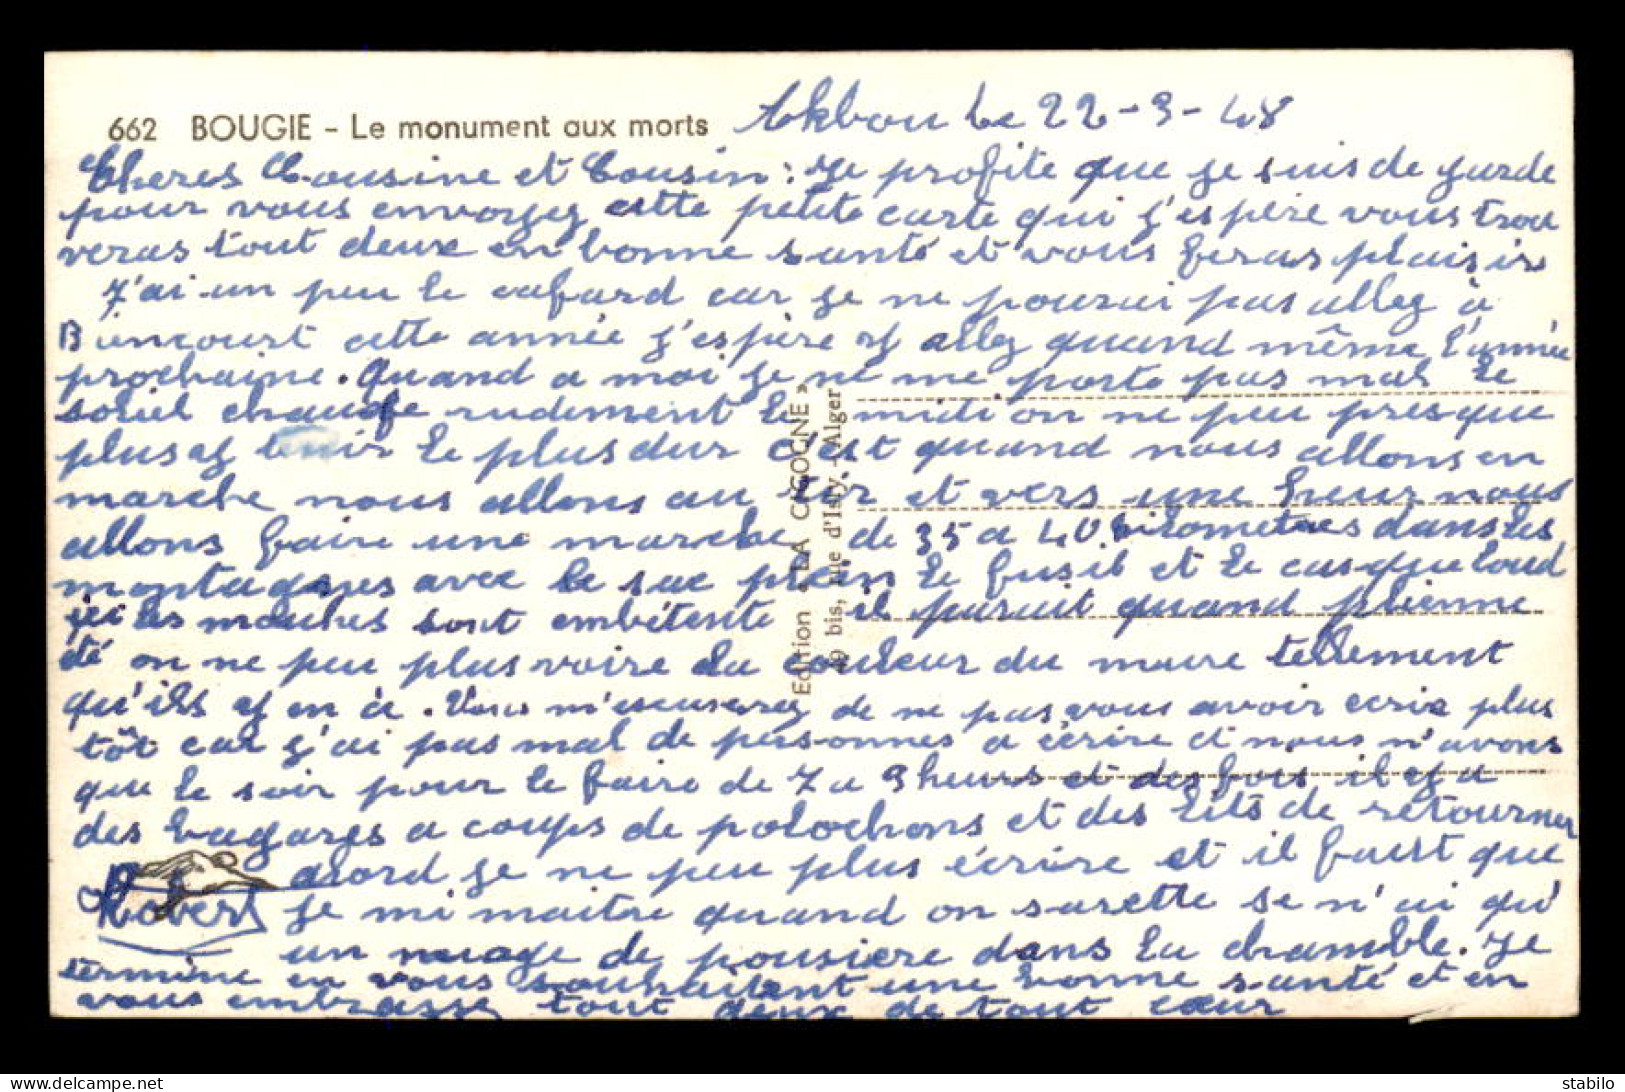 662 BOUGIE - Le monument aux morts
Akbou Le 22-9-48
Cheres Cousine et Cousin: Je profite que je suis de garde
pour vous envoyez cette petite carte qui j'espère vous trou
veras tout deux en bonne santé et vous feras plaisir
J'ai un peu le cafard car je ne pourai pas allez à
cette année j'espère y allez quand même l'année
prochaine. Quand a moi je ne me porte pas mal Le
soleil chauffe rudement le midi on ne peu presque
plus y tenir le plus dur c'est quand nous allons en
marche nous allons au tir et vers une heur nous
allons faire une marche de 35 a 40 kilometres dans les
montagnes avec le sac plein le fusil et le casque loud
ici les mouches sont embétente il parait quand plienne
été on ne peu plus voire la couleur du mure tellement
qu'ils y en à. Vous m'escuserez de ne pas vous avoir ecrie plus
tôt car j'ai pas mal de personnes a écrire et nous n'avons
que le soir pour le faire de 7 a 9 heurs et des fois il y a
des bagares a coups de polochons et des lits de retourner
alord je ne peu plus écrire et il faut que
je mi maitre quand on sarette se n'ai qu'
un nuage de pousiere dans la chamble. Je
termine en vous souhaitent une bonne santé et en
vous embrasse tout deux de tout cœur
Robert
Edition « LA CIGOGNE »
49 bis, rue d'Isly - Alger
stabilo